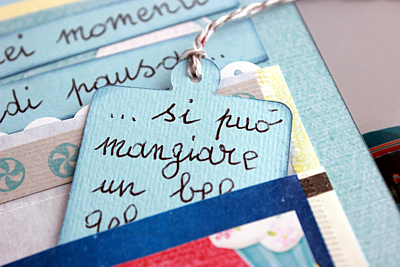 ei momenti
di pausa...
... si può
mangiare
un bel
gel